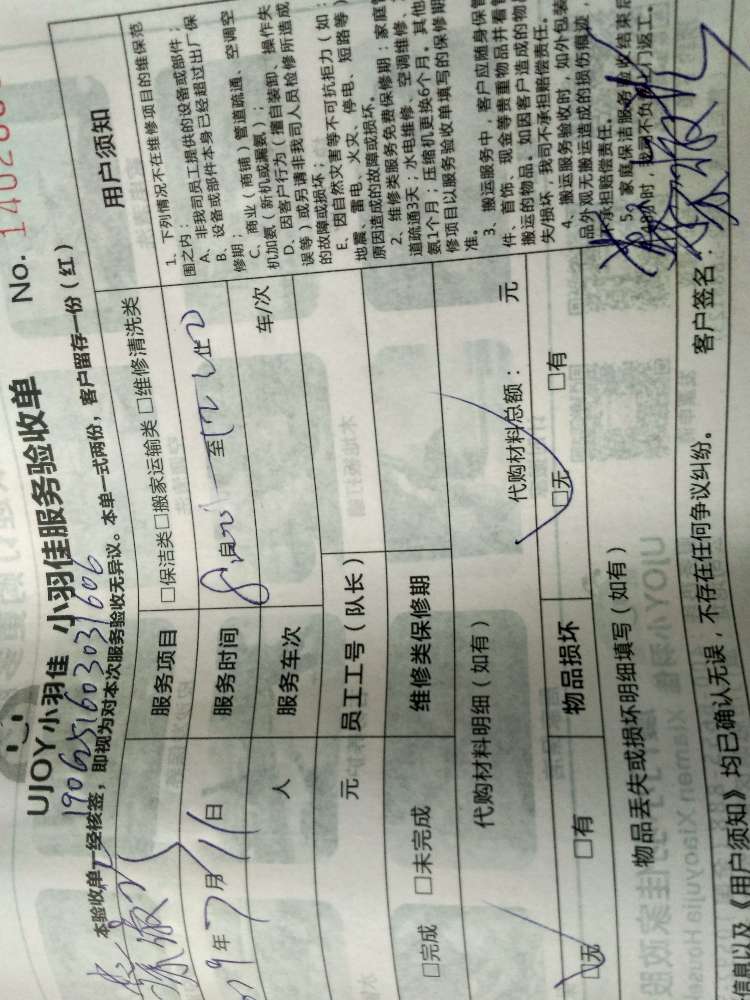 No. 14026
UJOY小羽佳 小羽佳服务验收单
1906251603031606
本验收单一经核签，即视为对本次服务验收无异议。本单一式两份，客户留存一份（红）
服务项目 □保洁类□搬家运输类 □维修清洗类
9年7月11日 服务时间 至
人 服务车次 车/次
元 员工工号（队长）
□完成 □未完成 维修类保修期
代购材料明细（如有） 代购材料总额： 元
□无 □有 物品损坏 □无 □有
物品丢失或损坏明细填写（如有）
用户须知
1、下列情况不在维修项目的维保范
围之内：
A、非我司员工提供的设备或部件；
B、设备或部件本身已经超过出厂保
修期；
C、商业（商铺）管道疏通、空调空
机加氨（新机或漏氨）；
D、因客户行为（擅自装卸、操作失
误等）或另请非我司人员检修所造成
的故障或损坏；
E、因自然灾害等不可抗拒力（如：
地震、雷电、火灾、停电、短路等）
原因造成的故障或损坏。
2、维修类服务免费保修期：家庭
道疏通3天；水电维修、空调维修、
氨1个月；压缩机更换6个月。其他
修项目以服务验收单填写的保修期
准。
3、搬运服务中，客户应随身保管
件、首饰、现金等贵重物品并看管
搬运的物品。如因客户造成的物品
失/损坏，我司不承担赔偿责任。
4、搬运服务验收时，如外包装
品外观无搬运造成的损伤痕迹，
不承担赔偿责任。
5、家庭保洁服务验收结束后
小时，我司不负责上门返工。
信息以及《用户须知》均已确认无误，不存在任何争议纠纷。 客户签名：